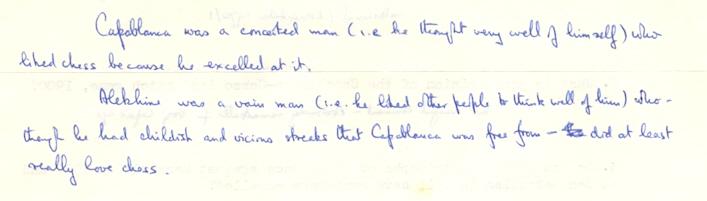 Capablanca was a conceited man (i.e he thought very well of himself) who
liked chess because he excelled at it.
Alekhine was a vain man (i.e. he liked other people to think well of him) who -
though he had childish and vicious streaks that Capablanca was free from - did at least
really love chess.